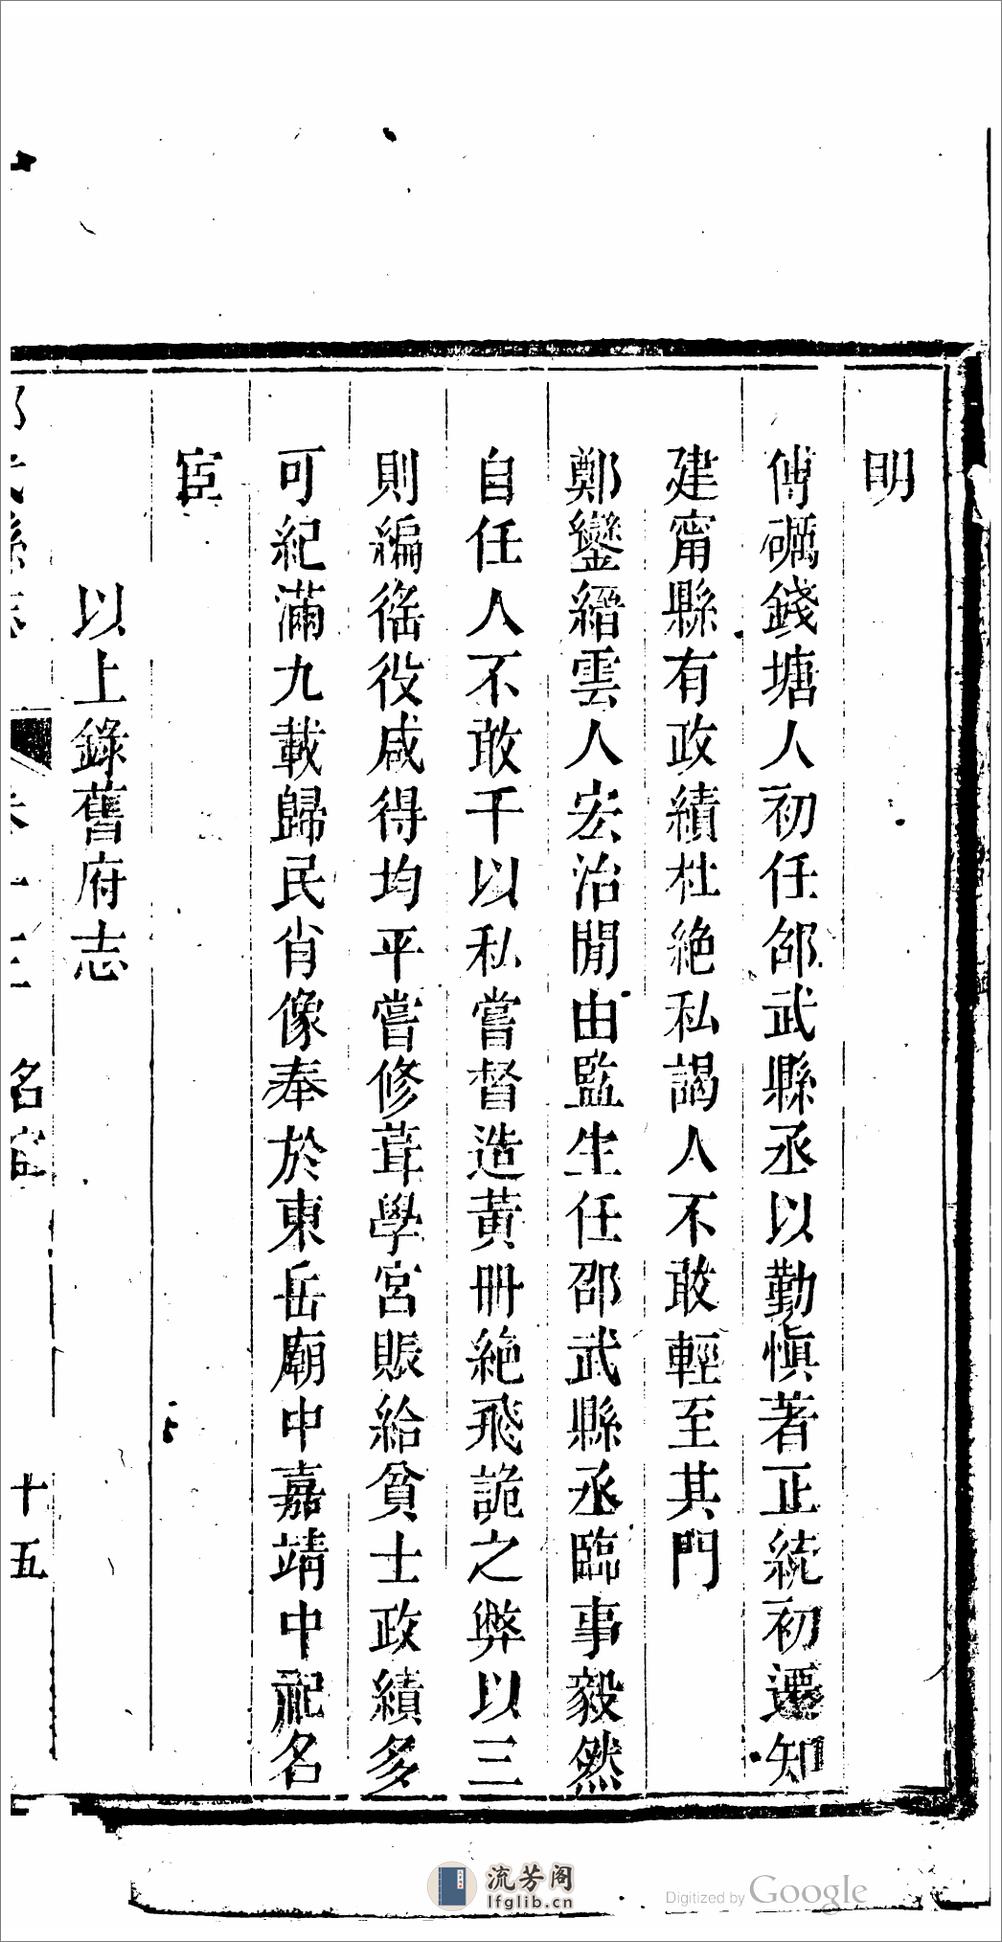 明
傅礪錢塘人初任邵武縣丞以勤慎著正統初遷知
建甯縣有政績杜絶私謁人不敢輕至其門
鄭鑾縉雲人宏治閒由監生任邵武縣丞臨事毅然
自任人不敢干以私嘗督造黃冊絶飛詭之弊以三
則編徭役咸得均平嘗修葺學宮賑給貧士政績多
可紀滿九載歸民肖像奉於東岳廟中嘉靖中祀名
宦
以上錄舊府志
名宦
十五
流芳阁
lfglib.cn
Digitized by Google